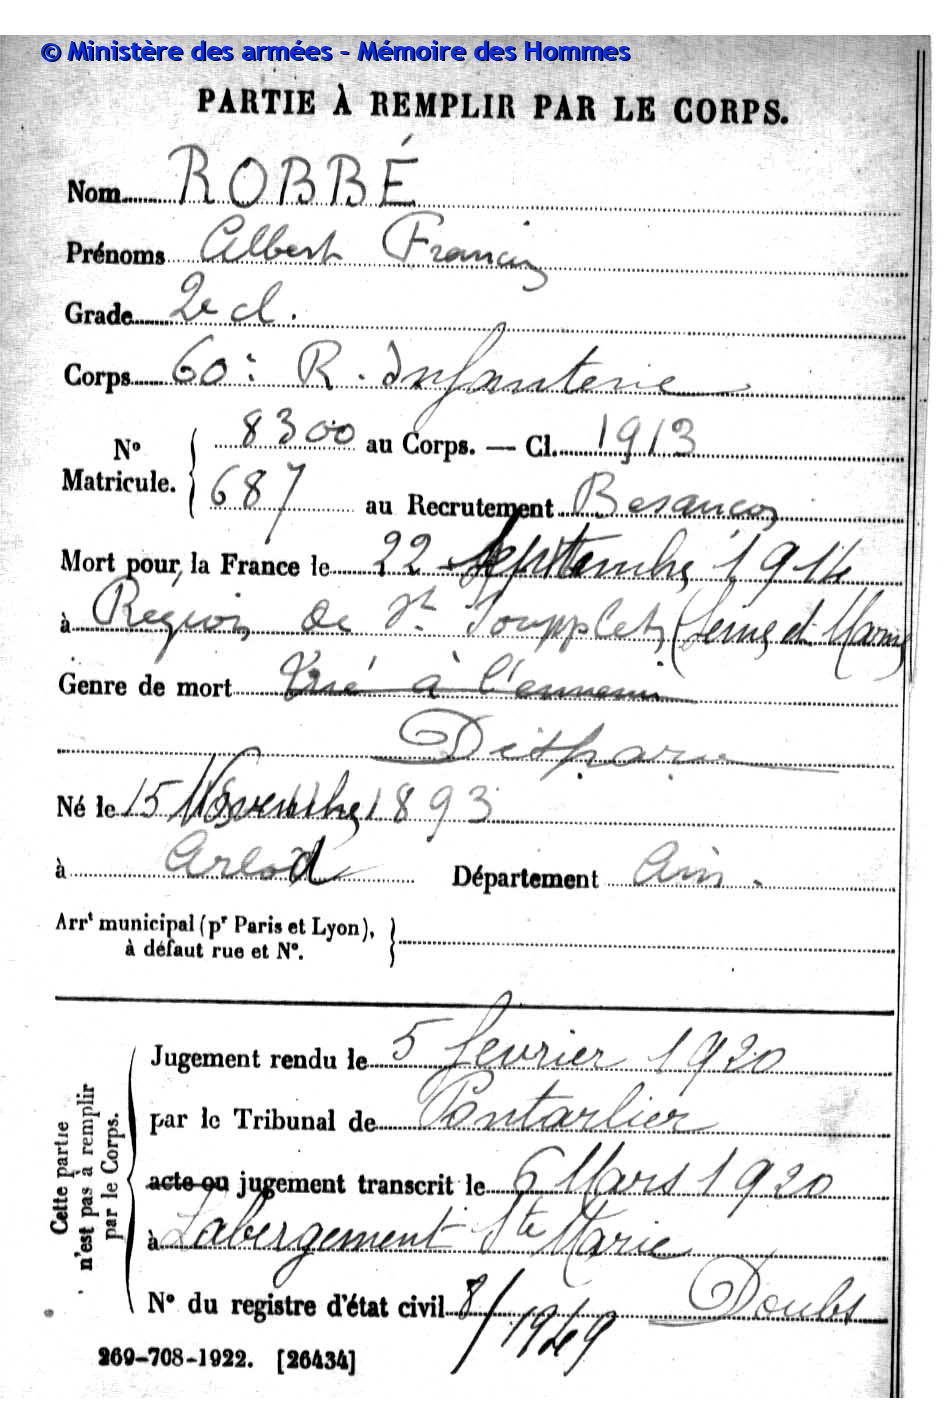 © Ministère des armées - Mémoire des Hommes
PARTIE À REMPLIR PAR LE CORPS.
Nom ROBBÉ
Prénoms Albert Francis
Grade 2e cl.
Corps 60e R. Infanterie
N° Matricule. { 8300 au Corps. — Cl. 1913
687 au Recrutement Besançon
Mort pour la France le 22 Septembre 1914
à Région de St Soupplets (Seine et Marne
Genre de mort Tué à l'ennemi
Disparu
Né le 15 Novembre 1893
à Arlod Département Ain.
Arrt municipal (pr Paris et Lyon),
à défaut rue et N°.
Cette partie n'est pas à remplir par le Corps.
Jugement rendu le 5 février 1920
par le Tribunal de Pontarlier
acte ou jugement transcrit le 6 Mars 1920
à Labergement Ste Marie
N° du registre d'état civil 8/ Doubs
269-708-1922. [26434]